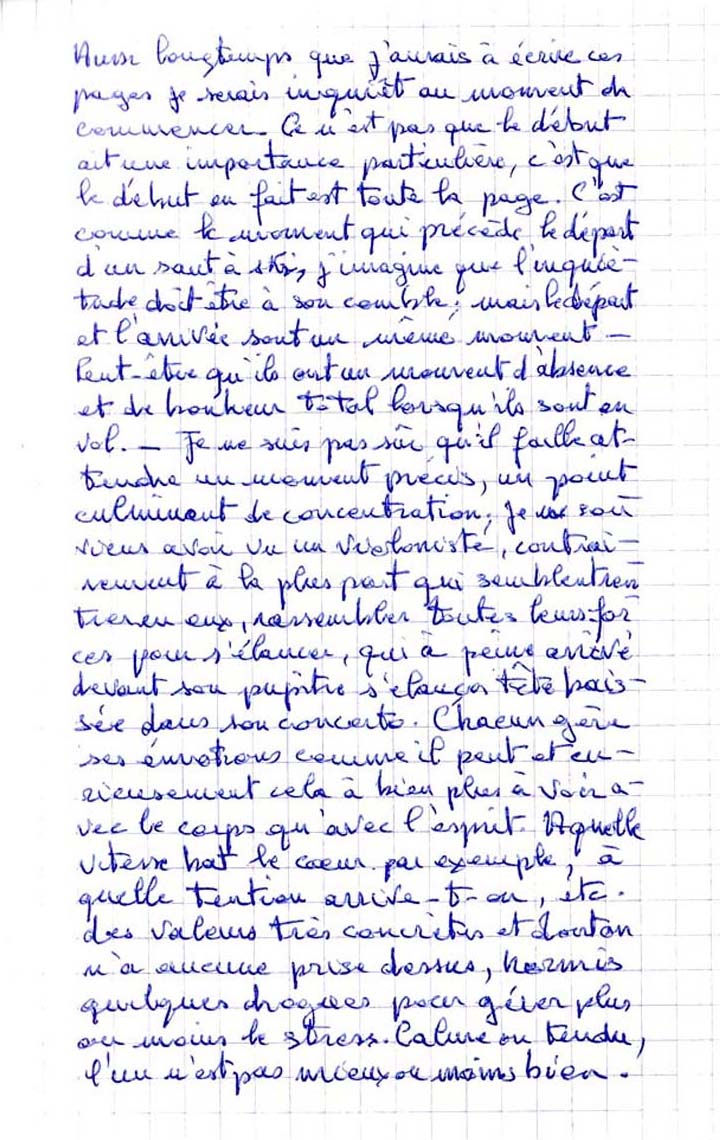 Aussi longtemps que j'aurais à écrire ces
pages je serais inquièt au moment de
commencer. Ce n'est pas que le début
ait une importance particulière, c'est que
le début en fait est toute la page. C'est
comme le moment qui précède le départ
d'un saut à ski, j'imagine que l'inquié-
tude doit être à son comble; mais le départ
et l'arrivée sont un même moment —
Peut-être qu'ils ont un moment d'absence
et de bonheur total lorsqu'ils sont en
vol. — Je ne suis pas sûr qu'il faille at-
tendre un moment précis, un point
culminant de concentration; Je me sou
viens avoir vu un violoniste, contrai-
rement à la plus part qui semblent ren
trer en eux, rassembler toutes leurs for
ces pour s'élancer, qui à peine arrivé
devant son pupitre s'élança tête bais-
sée dans son concerto. Chacun gère
ses émotions comme il peut et cu-
rieusement cela à bien plus à voir a-
vec le corps qu'avec l'esprit. A quelle
vitesse bat le coeur par exemple, à
quelle tention arrive-t-on, etc.
des valeurs très concrètes et dont on
n'a aucune prise dessus, hormis
quelques drogues pour gérer plus
ou moins le stress. Calme ou tendu,
l'un n'est pas mieux ou moins bien.